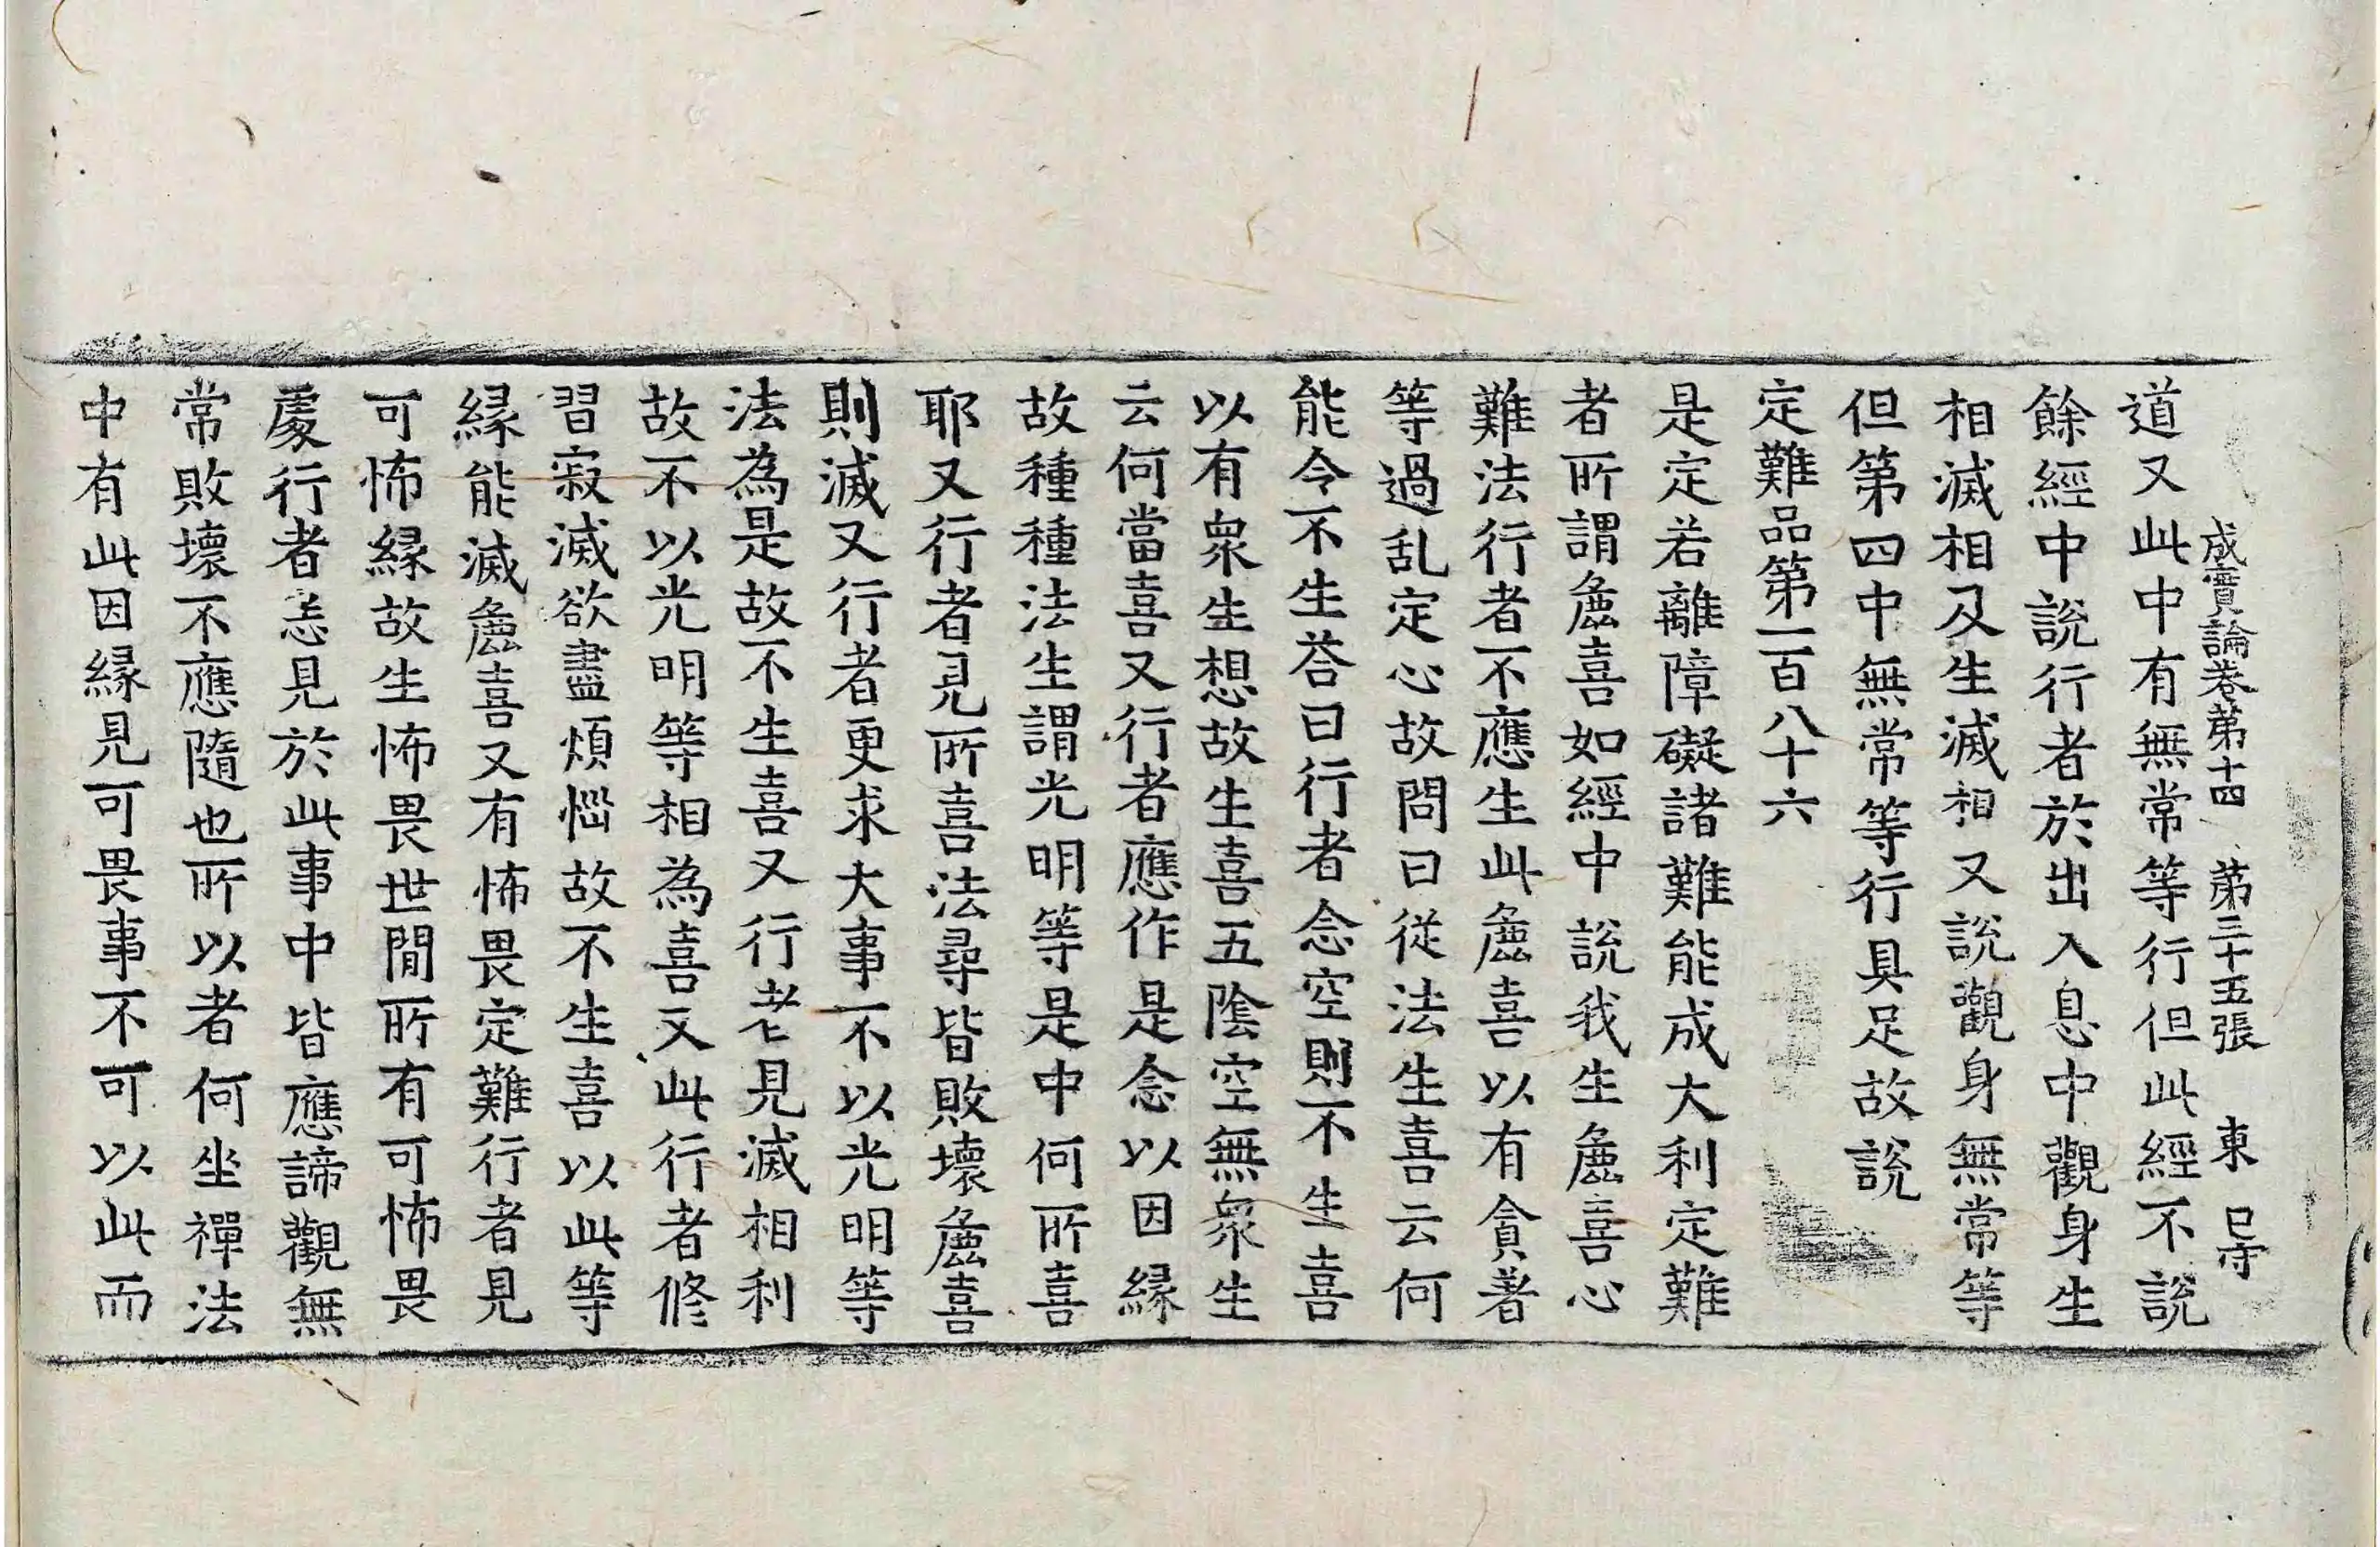 成實論卷第十四 第三十五張 東 巳守
道又此中有無常等行但此經不說
餘經中說行者於出入息中觀身生
相滅相及生滅相又說觀身無常等
但第四中無常等行具足故說
定難品第一百八十六
是定若離障礙諸難能成大利定難
者所謂麁喜如經中說我生麁喜心
難法行者不應生此麁喜以有貪著
等過乱定心故問曰從法生喜云何
能令不生荅曰行者念空則不生喜
以有衆生想故生喜五陰空無衆生
云何當喜又行者應作是念以因縁
故種種法生謂光明等是中何所喜
耶又行者見所喜法尋皆敗壞麁喜
則滅又行者更求大事不以光明等
法為是故不生喜又行者見滅相利
故不以光明等相為喜又此行者修
習寂滅欲盡煩惱故不生喜以此等
縁能滅麁喜又有怖畏定難行者見
可怖縁故生怖畏世閒所有可怖畏
處行者悉見於此事中皆應諦觀無
常敗壞不應隨也所以者何坐禪法
中有此因縁見可畏事不可以此而